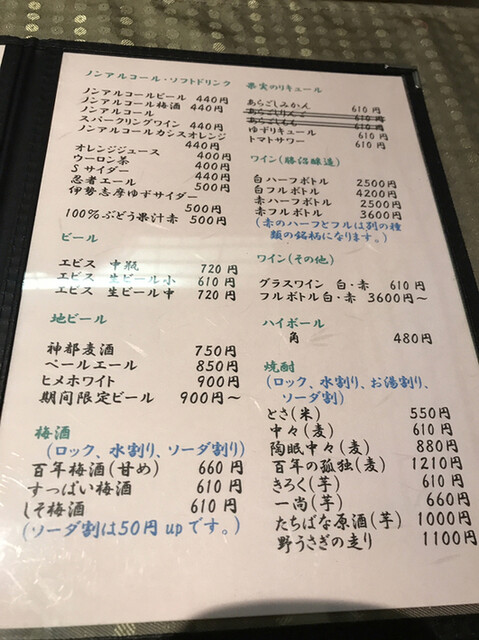 ノンアルコール・ソフトドリンク
ノンアルコールビール 440円
ノンアルコール梅酒 440円
ノンアルコール
スパークリングワイン 440円
ノンアルコールカシスオレンジ
440円
オレンジジュース 400円
ウーロン茶 400円
Sサイダー 440円
忍者エール 500円
伊勢志摩ゆずサイダー
500円
100%ぶどう果汁赤 500円
ビール
エビス 中瓶 720円
エビス 生ビール小 610円
エビス 生ビール中 720円
地ビール
神都麦酒 750円
ペールエール 850円
ヒメホワイト 900円
期間限定ビール 900円～
梅酒
(ロック、水割り、ソーダ割り)
百年梅酒(甘め) 660円
すっぱい梅酒 610円
しそ梅酒 610円
(ソーダ割は50円upです。)
果実のリキュール
あらごしみかん 610円
あらごしりんご
あらごしもも 610円
ゆずリキュール 610円
トマトサワー 610円
ワイン(勝沼醸造)
白ハーフボトル 2500円
白フルボトル 4200円
赤ハーフボトル 2500円
赤フルボトル 3600円
(赤のハーフとフルは別の種
類の銘柄になります。)
ワイン(その他)
グラスワイン 白・赤 610円
フルボトル白・赤 3600円～
ハイボール
角 480円
焼酎
(ロック、水割り、お湯割り、
ソーダ割)
とさ(米) 550円
中々(麦) 610円
陶眠中々(麦) 880円
百年の孤独(麦) 1210円
きろく(芋) 610円
一尚(芋) 660円
たちばな原酒(芋) 1000円
野うさぎの走り 1100円